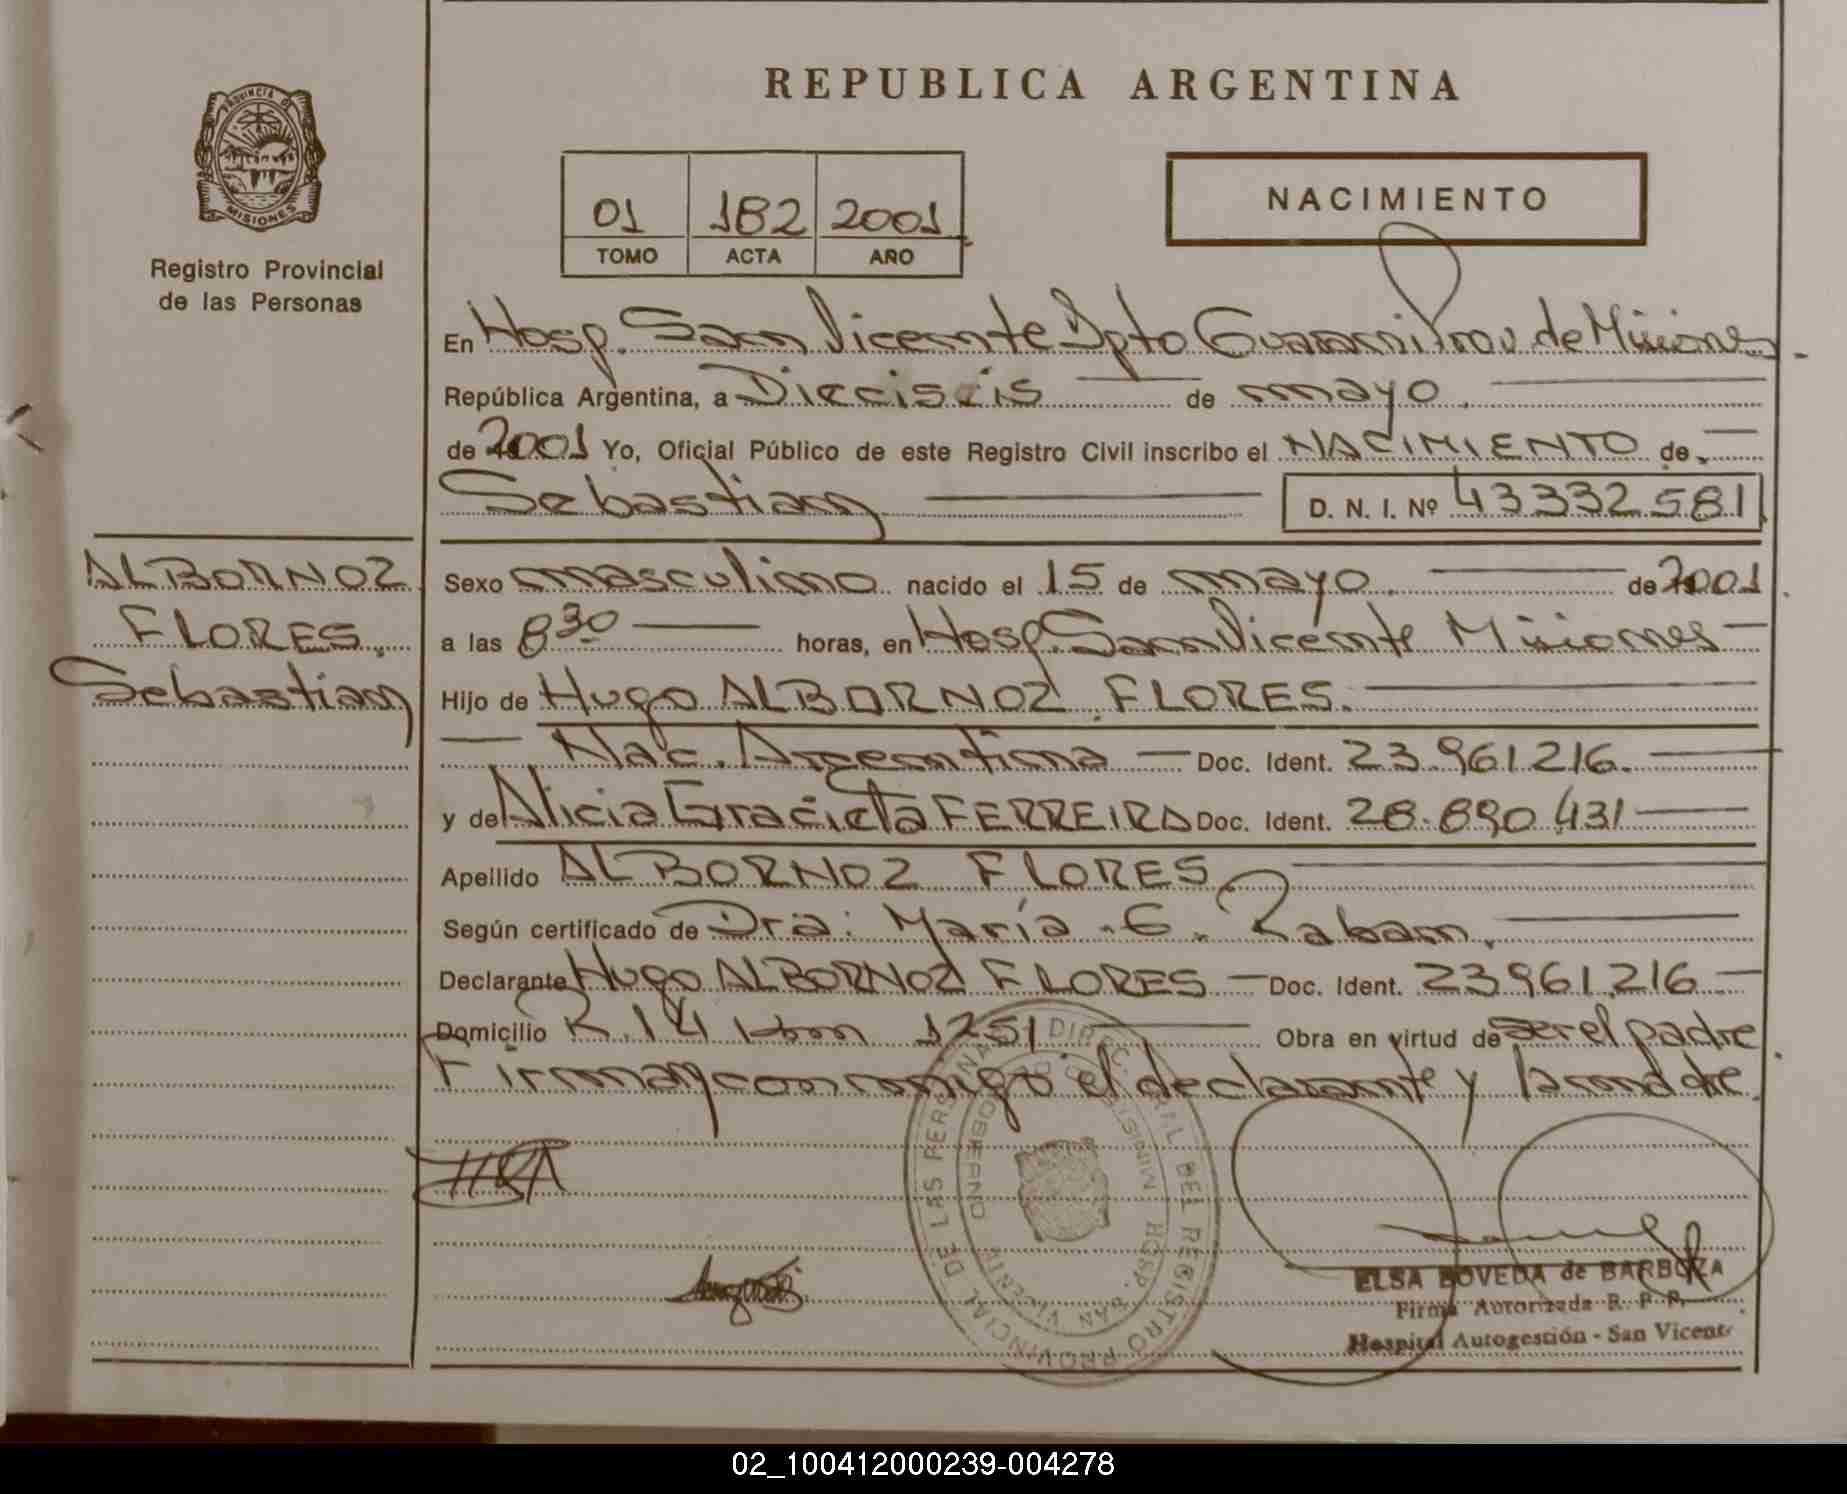 PROVINCIA DE
MISIONES
Registro Provincial
de las Personas
ALBORNOZ
FLORES,
Sebastian
REPUBLICA ARGENTINA
01 182 2001
TOMO ACTA AÑO
NACIMIENTO
En Hosp. San Vicente Dpto Guarani Prov. de Misiones.
República Argentina, a Dieciseis de mayo
de 2001 Yo, Oficial Público de este Registro Civil inscribo el NACIMIENTO de
Sebastian D. N. I. Nº 43332581
Sexo masculino nacido el 15 de mayo de 2001
a las 8 30 horas, en Hosp. San Vicente Misiones
Hijo de Hugo ALBORNOZ FLORES.
Nac. Argentina Doc. Ident. 23.961216.
y de Alicia Gracieta FERREIRA Doc. Ident. 28.890.431
Apellido ALBORNOZ FLORES
Según certificado de Dra: María E. Raban.
Declarante Hugo ALBORNOZ FLORES Doc. Ident. 23961.216
Domicilio R. 14 Km 1251 Obra en virtud de ser el padre
Firman conmigo el declarante y la madre.
DIREC. GRAL. DEL REGISTRO PROVINCIAL DE LAS PERSONAS
MINIST. DE GOBIERNO
HOSP. SAN VICENTE
ELSA BOVEDA de BARBOZA
Firma Autorizada R. P. P.
Hospital Autogestión - San Vicente
02_100412000239-004278